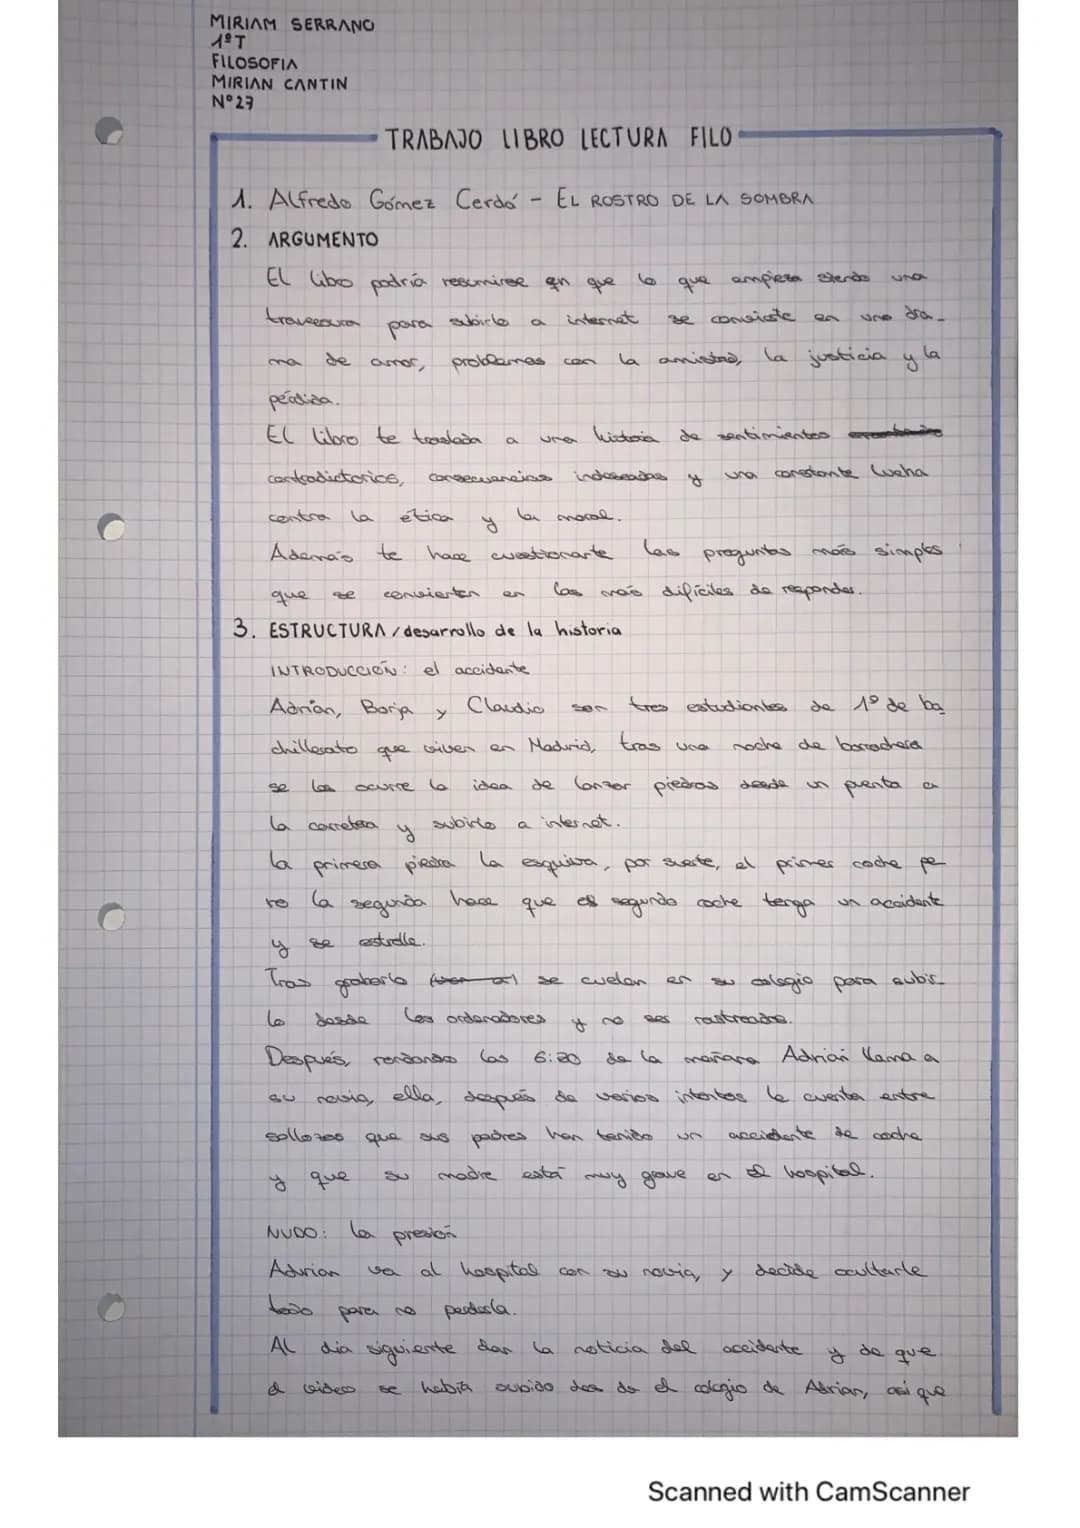 MIRIAM SERRANO
1ºT
FILOSOFIA
MIRIAN CANTIN
Nº27
TRABAJO LIBRO LECTURA FILO
1. Alfredo Gómez Cerdá - EL ROSTRO DE LA SOMBRA
2. ARGUMENTO
El libro podría resumirse en que lo que empieza siendo una
travesura para subirlo a internet se convierte en una dra-
ma de amor, problemas con la amistad, la justicia y la
pérdida.
El libro te traslada a una historia de sentimientos
contradictorios, consecuencias indeseadas y una constante lucha
contra la ética y la moral.
Además te hace cuestionarte las preguntas más simples
que se convierten en las más difíciles de responder.
3. ESTRUCTURA / desarrollo de la historia
INTRODUCCIÓN: el accidente
Adrián, Borja y Claudio son tres estudiantes de 1º de ba
chillerato que viven en Madrid, tras una noche de borrachera
se les ocurre la idea de lanzar piedras desde un puente a
la carretera y subirlo a internet.
La primera piedra la esquiva, por suerte, el primer coche pe
ro la segunda hace que el segundo coche tenga un accidente
y se estrelle.
Tras grabarlo se cuelan en su colegio para subir-
lo desde los ordenadores y no ser rastreados.
Después, rondando las 6:20 de la mañana Adrián llama a
su novia, ella, después de varios intentos le cuenta entre
sollozos que sus padres han tenido un accidente de coche
y que su madre está muy grave en el hospital.
NUDO: la presión
Adurian va al hospital con su novia, y decide ocultarle
todo para no perderla.
Al dia siguiente dan la noticia del accidente y de que
el video se había subido des de el colegio de Adrian, así que
Scanned with CamScanner